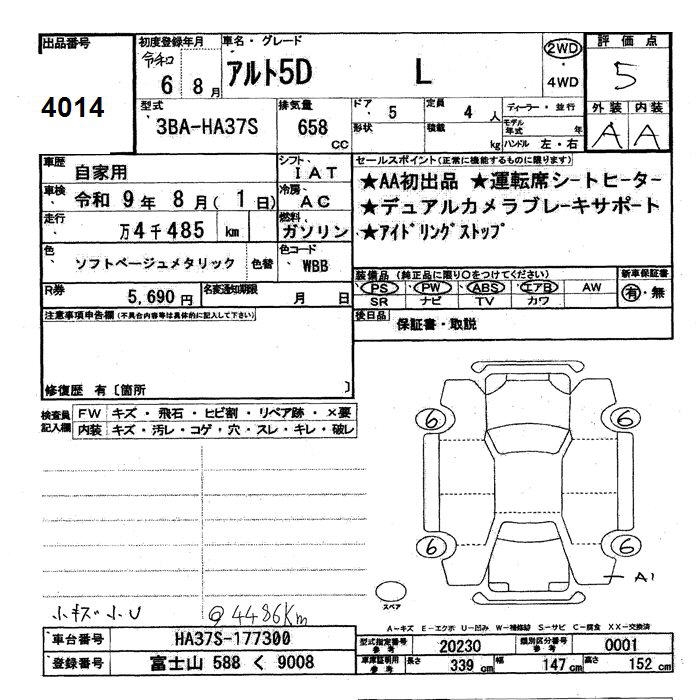 出品番号 初度登録年月 車名・グレード 2WD 評価点
4014 令和 6 8月 アルト5D L ・ 4WD 5
型式 排気量 ドア 5 定員 4人 ディーラー・並行 外装 内装
3BA-HA37S 658 CC 形状 積載 kg モデル年式 年 ハンドル 左・右 A A
車歴 自家用 シフト IAT セールスポイント(正常に機能するものに限ります)
車検 令和 9年 8月( 1日) 冷房 AC ★AA初出品 ★運転席シートヒーター
走行 万4千485 km 燃料 ガソリン ★デュアルカメラブレーキサポート
色 ソフトベージュメタリック 色替 色コード WBB ★アイドリングストップ
装備品(純正品に限り○をつけてください) 新車保証書
R券 5,690円 名変通知期限 月 日 PS PW ABS エアB AW 有・無
SR ナビ TV カワ
注意事項申告欄(不具合内容等は具体的に記入して下さい) 後日品 保証書・取説
修復歴 有〔箇所 〕
検査員記入欄 FW キズ・飛石・ヒビ割・リペア跡・×要
内装 キズ・汚レ・コゲ・穴・スレ・キレ・破レ
6 6
6 6
A1
スペア
小キズ小U @4486Km
A-キズ E-エクボ U-凹み W-補修跡 S-サビ C-腐食 XX-交換済
車台番号 HA37S-177300 型式指定番号 参考 20230 類別区分番号 参考 0001
登録番号 富士山 588 く 9008 車庫証明用 参考 長さ 339cm 幅 147cm 高さ 152cm